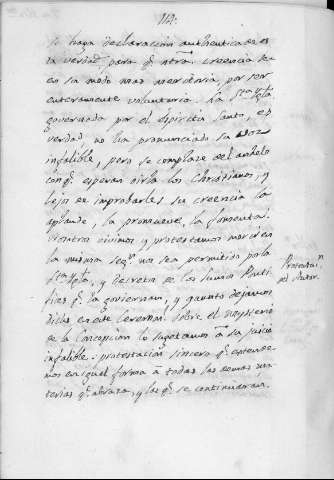 114.
se haga declaración authentica de es
ta verdad, para q.e ntra. creencia sea
en su modo mas meritoria, por ser
enteramente voluntaria. La S.ta Ygla
governada por el espiritu santo, es
verdad no ha pronunciado su voz
infalible, pero se complaze del anhelo
con q.e esperan oirla los Christianos, y
lejos de improbarles su creencia la
aplaude, la promueve, la fomenta.
Nosotros vivimos y protestamos morir en
la misma seg.n nos sea permitido por la
S.ta Ygla, y decretos de los Sumos Ponti
fices q.e la goviernan, y quanto dejamos
dicho en este sobre el mysterio
de la Concepcion lo sugetamos à su juicio
infalible: protestacion sincera q.e entende
mos en igual forma à todas las demas ma
terias q.e abraza, y las q.e se continuaran.
Protestac.n
del Autor.